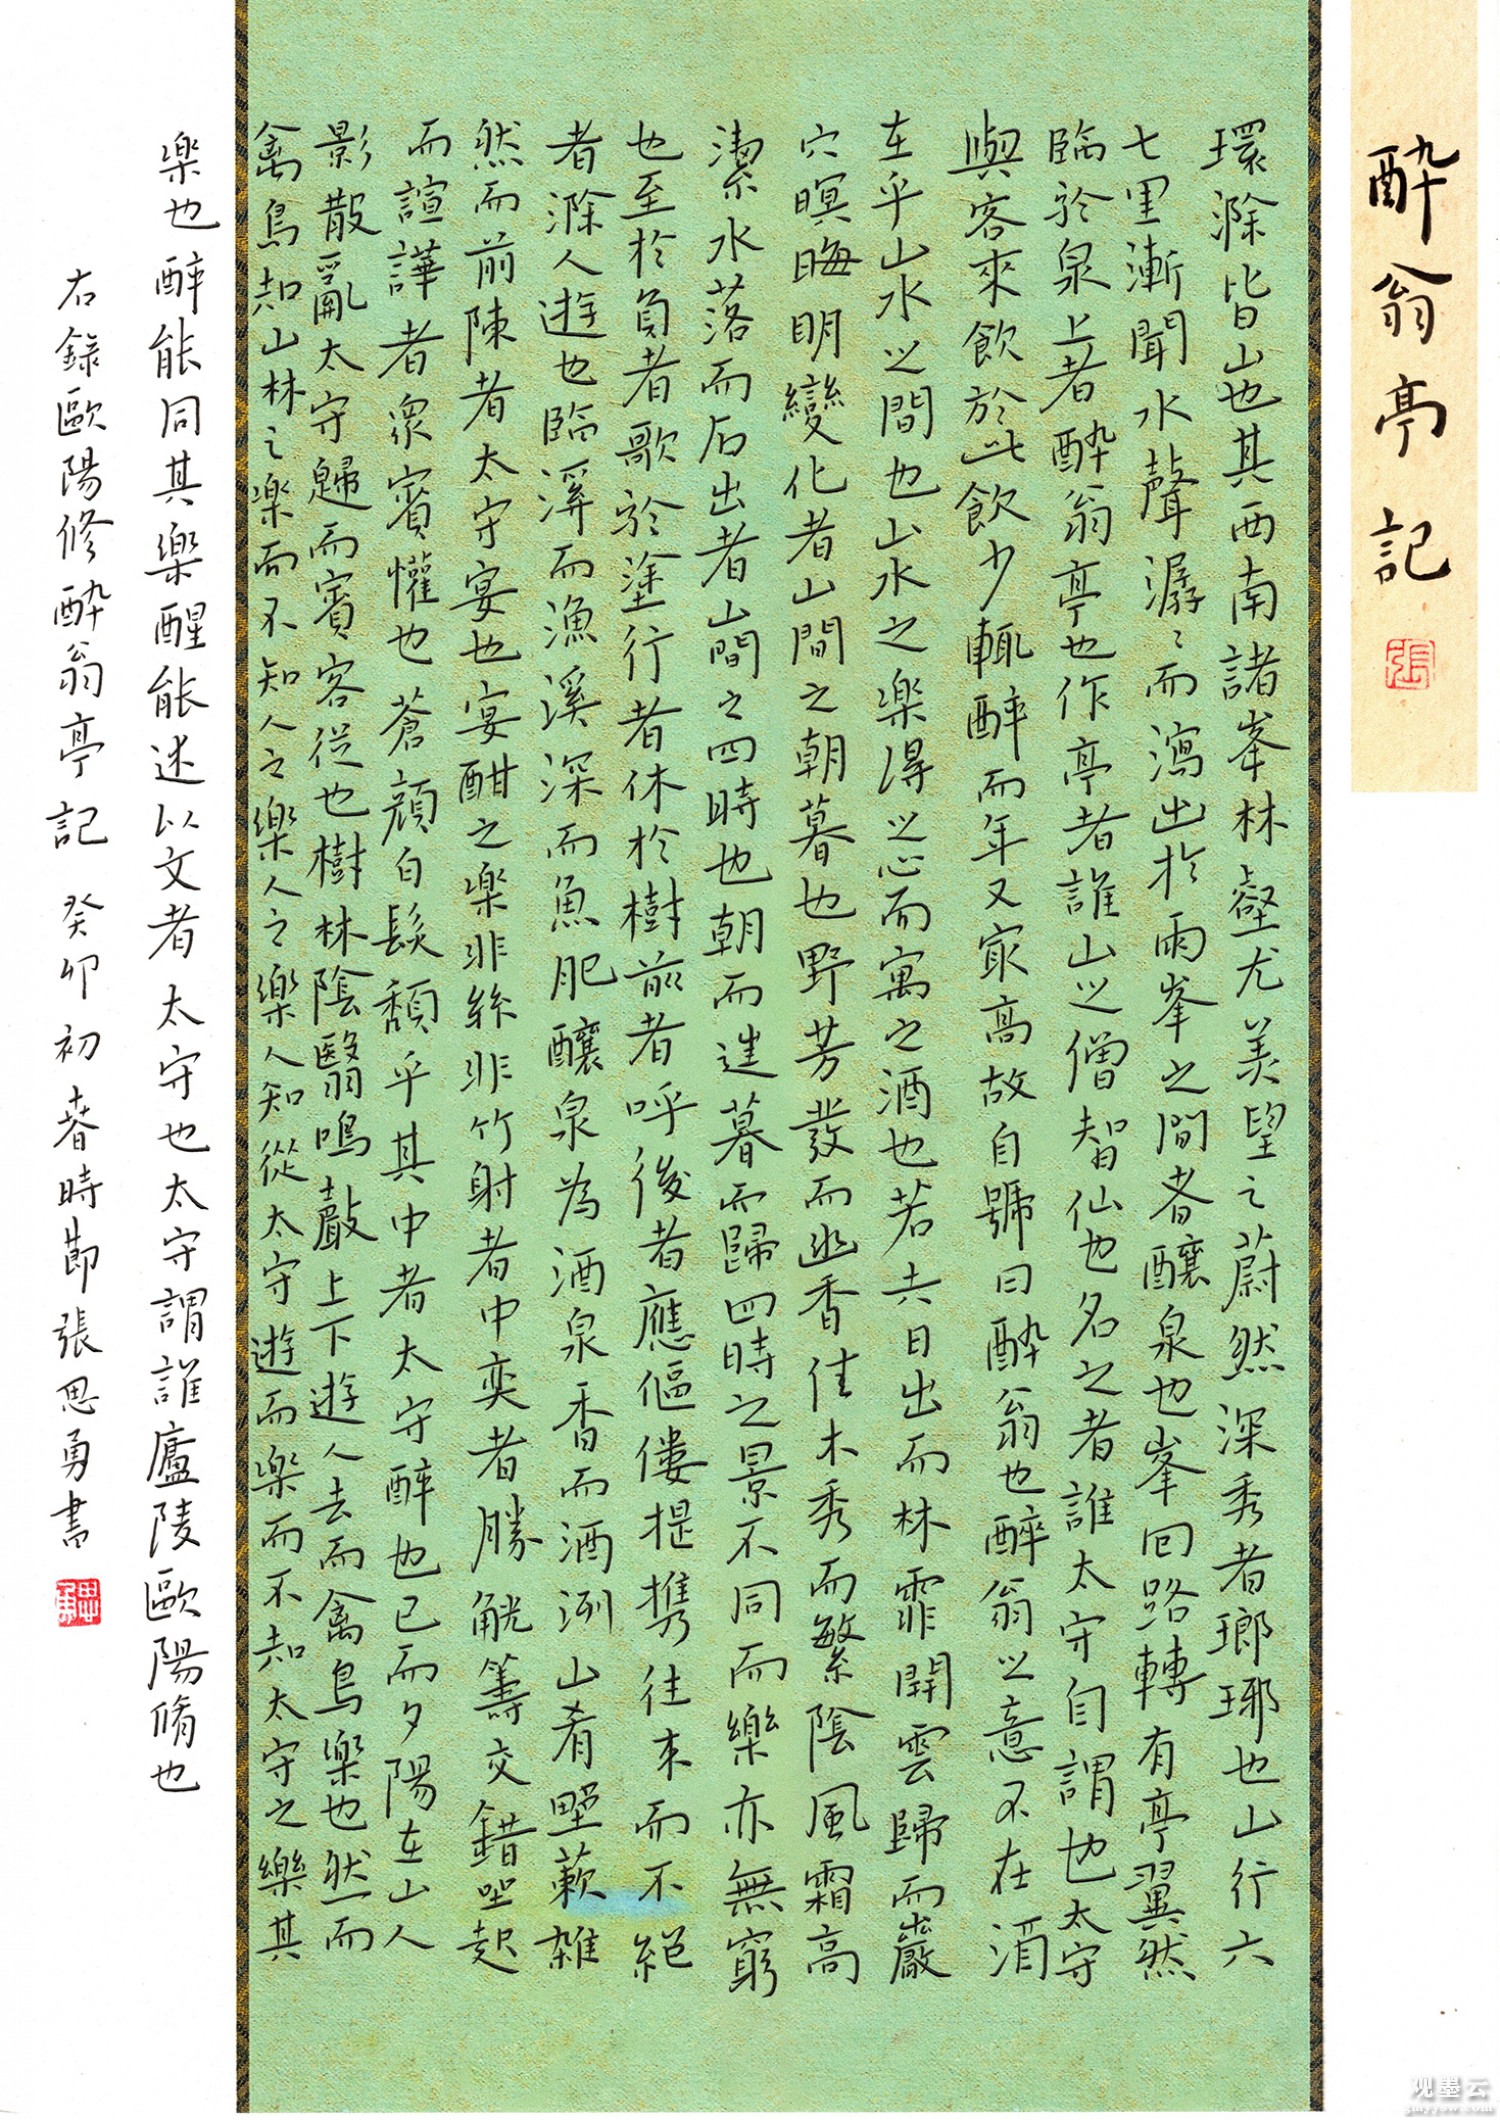 酔翁亭記
張
環滁皆山也其西南諸峯林壑尤美望之蔚然深秀者瑯琊也山行六
七里漸聞水聲潺〻而瀉出於兩峯之間者釀泉也峯回路轉有亭翼然
臨於泉上者酔翁亭也作亭者誰山之僧智仙也名之者誰太守自謂也太守
與客來飲於此飲少輒醉而年又最高故自號曰酔翁也醉翁之意不在酒
在乎山水之間也山水之樂得之心而寓之酒也若夫日出而林霏開雲歸而巖
穴暝晦明變化者山間之朝暮也野芳發而幽香佳木秀而繁陰風霜高
潔水落而石出者山間之四時也朝而進暮而歸四時之景不同而樂亦無窮
也至於負者歌於塗行者休於樹前者呼後者應傴僂提携往來而不絕
者滁人遊也臨溪而漁溪深而魚肥釀泉為酒泉香而酒洌山肴野蔌雜
然而前陳者太守宴也宴酣之樂非絲非竹射者中奕者勝觥籌交錯坐起
而諠譁者衆賓懽也蒼顏白髮頹乎其中者太守醉也已而夕陽在山人
影散亂太守歸而賓客從也樹林陰翳鳴聲上下遊人去而禽鳥樂也然而
禽鳥知山林之樂而不知人之樂人之樂人知從太守遊而樂而不知太守之樂其
樂也醉能同其樂醒能述以文者太守也太守謂誰廬陵歐陽脩也
右錄歐陽修酔翁亭記 癸卯初春時節張思勇書
思勇
观墨云